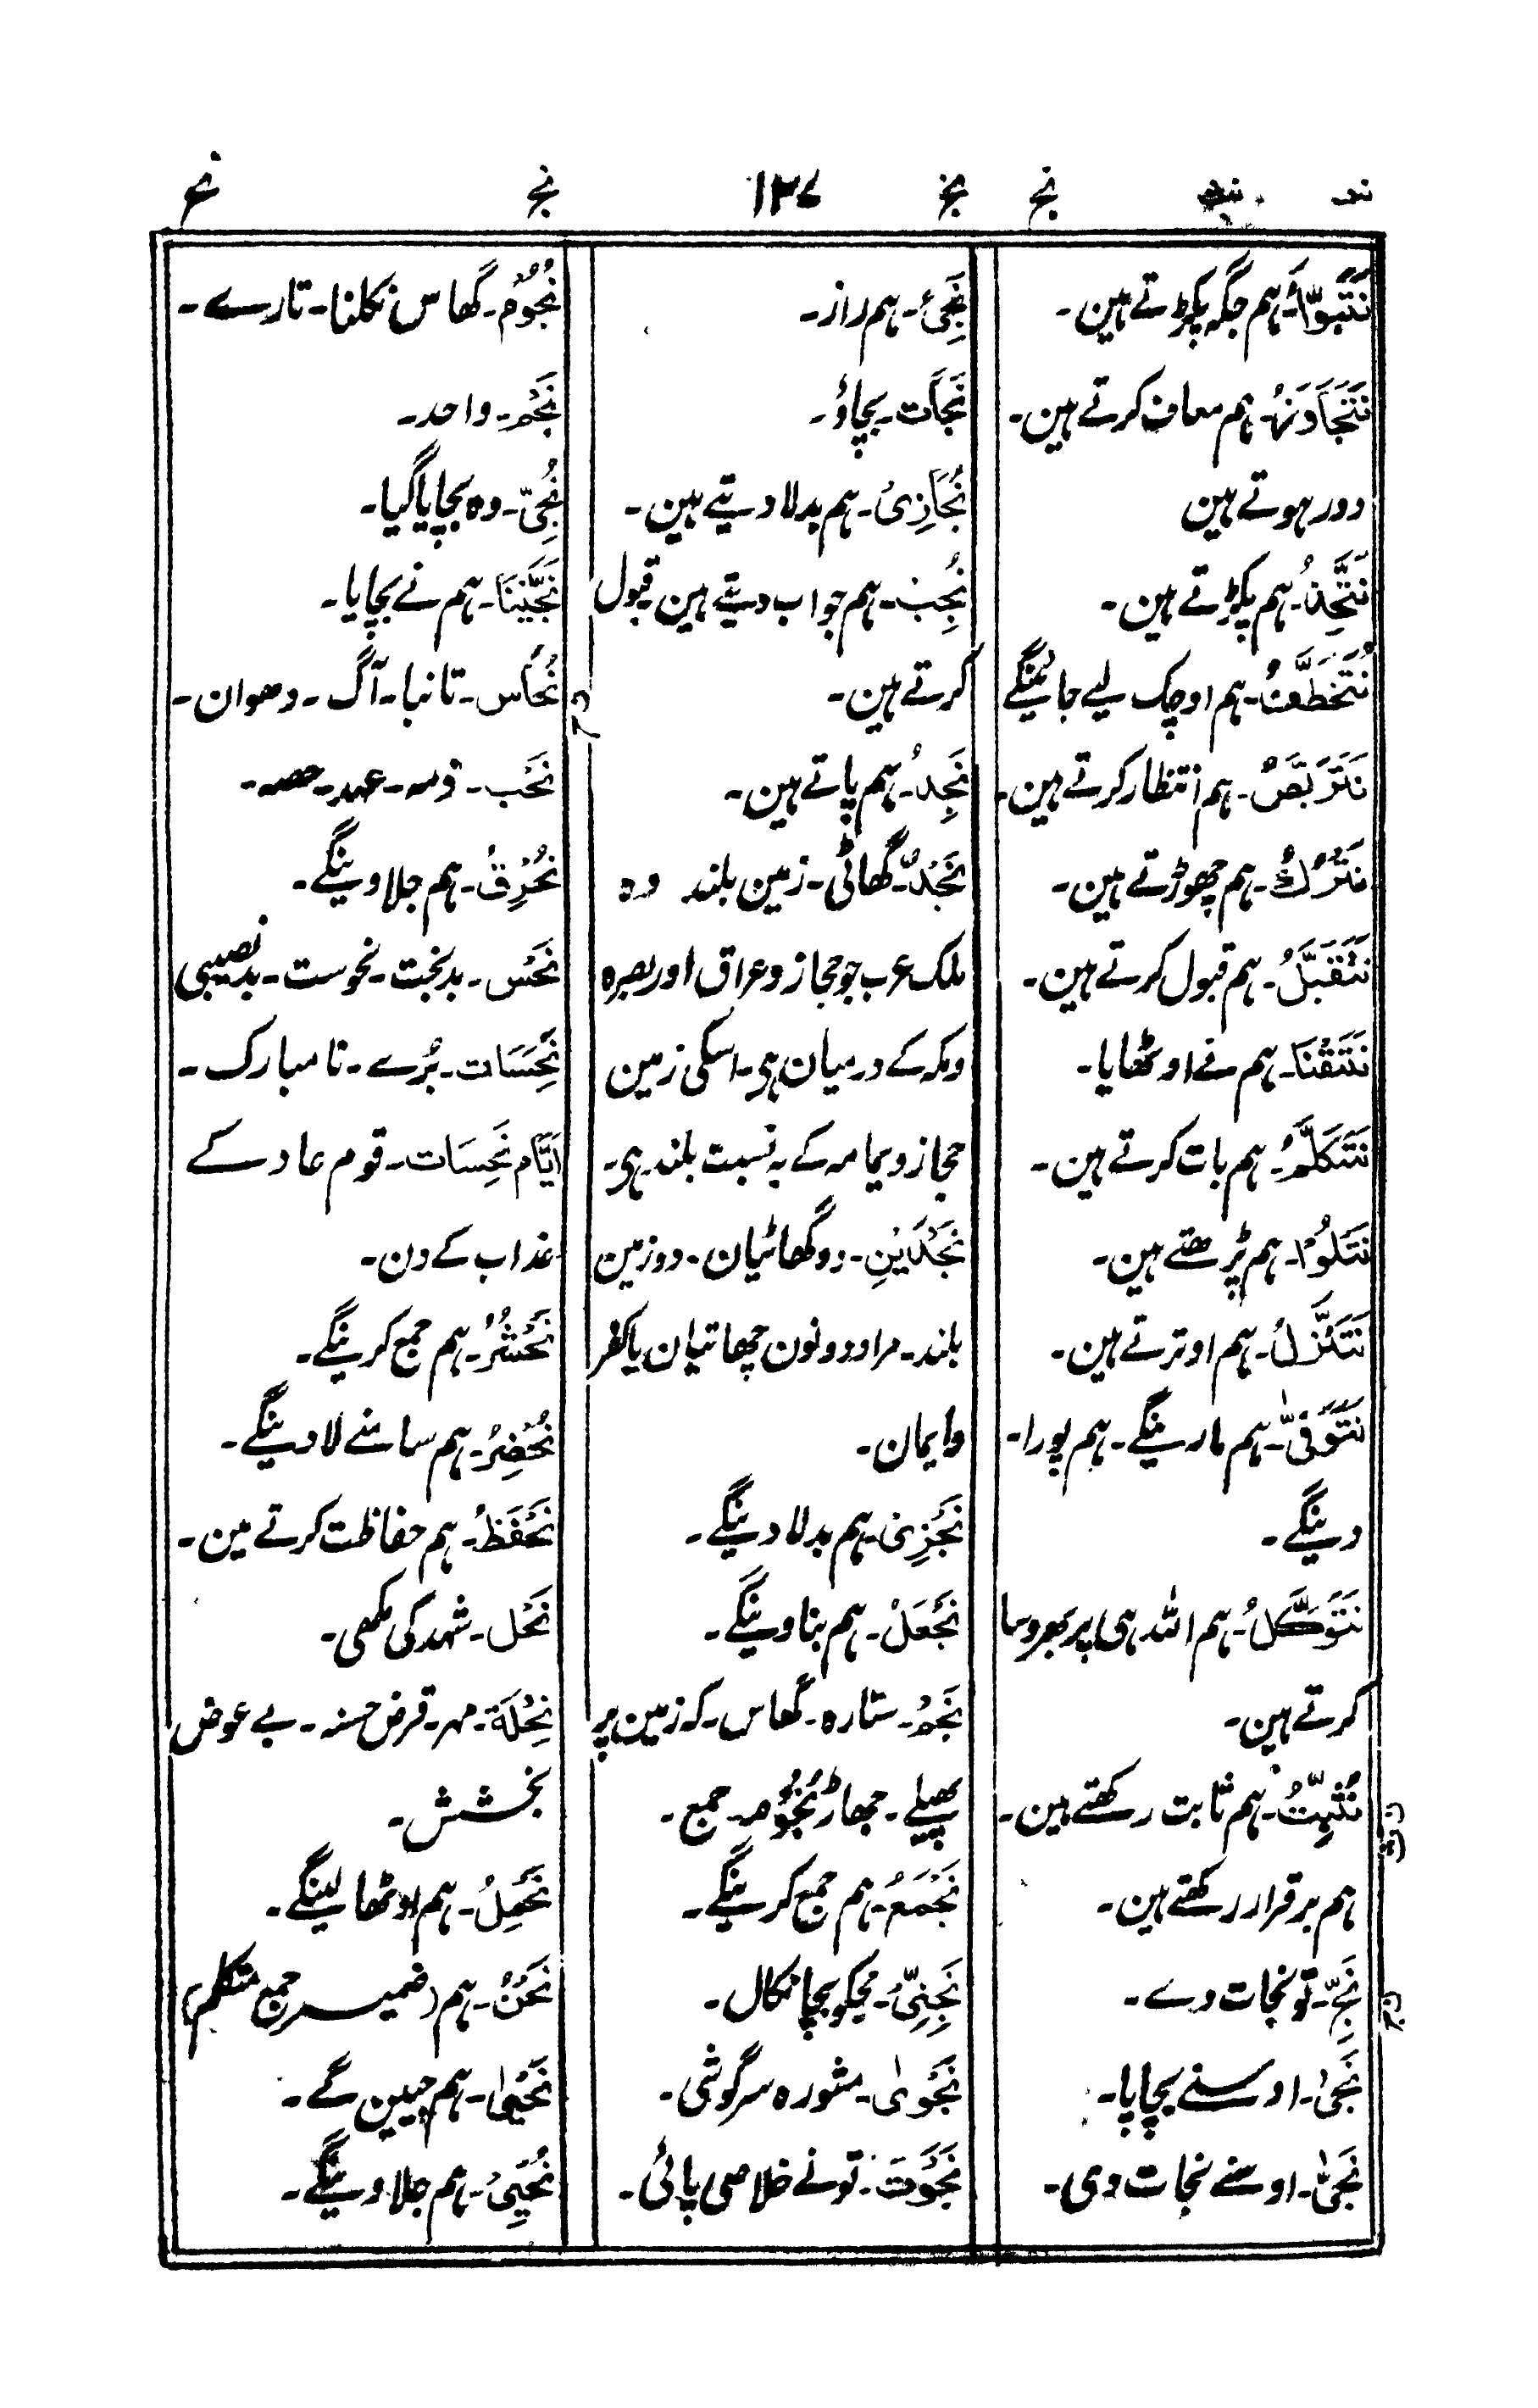 نت نث نج نج ۱۳۷ نج نح
نَتَبَوَّاُ۔ ہم جگہ پکڑتے ہین۔
نَتَجَاوَزُ۔ ہم معاف کرتے ہین۔
دور ہوتے ہین
نَتَّخِذُ۔ ہم پکڑتے ہین۔
نُتَخَطَّفُ۔ ہم اوچک لیے جائینگے
نَتَرَبَّصُ۔ ہم انتظار کرتے ہین۔
نَتْرُكُ۔ ہم چھوڑتے ہین۔
نَتَقَبَّلُ۔ ہم قبول کرتے ہین۔
نَتَقْنَا۔ ہم نے اوٹھایا۔
نَتَكَلَّمُ۔ ہم بات کرتے ہین۔
نَتْلُوْا۔ ہم پڑھتے ہین۔
نَتَنَزَّلُ۔ ہم اوترتے ہین۔
نَتَوَفّٰى۔ ہم مارینگے۔ ہم پورا۔
دینگے۔
نَتَوَكَّلُ۔ ہم اللہ ہی پر بھروسا
کرتے ہین۔
نُثَبِّتُ۔ ہم ثابت رکھتے ہین۔
ہم برقرار رکھتے ہین۔
نَجِّ۔ تو نجات دے۔
نَجٰى۔ اوسنے بچایا۔
نَجّٰى۔ اوسنے نجات دی۔
نَجِىّ۔ ہم راز۔
نَجَات۔ بچاؤ۔
نُجَازِىْ۔ ہم بدلا دیتے ہین۔
نُجِبْ۔ ہم جواب دیتے ہین قبول
کرتے ہین۔
نَجِدُ۔ ہم پاتے ہین۔
نَجْدٌ۔ گھاٹی۔ زمین بلند وہ
ملک عرب جو حجاز و عراق اور بصرہ
ومکہ کے درمیان ہی۔ اسکی زمین
حجاز و یمامہ کے بہ نسبت بلند ہی۔
نَجْدَيْنِ۔ دو گھاٹیان۔ دو زمین
بلند۔ مراد دونون چھاتیان یا کفر
وایمان۔
نَجْزِىْ۔ ہم بدلا دینگے۔
نَجْعَلْ۔ ہم بناوینگے۔
نَجْم۔ ستارہ۔ گھاس۔ کہ زمین پر
پھیلے۔ جھاڑ نُجُوْم۔ جمع۔
نَجْمَعُ۔ ہم جمع کرینگے۔
نَجِّنِىْ۔ مجکو بچا نکال۔
نَجْوٰى۔ مشورہ سرگوشی۔
نَجَوْتَ۔ تونے خلاصی پائی۔
نُجُوْم۔ گھاس نکلنا۔ تارے۔
نَجْم۔ واحد۔
نُجِّىَ۔ وہ بچایا گیا۔
نَجَّيْنَا۔ ہم نے بچایا۔
نُحَاس۔ تانبا۔ آگ۔ دھوان۔
نَحْب۔ ذمہ۔ عہد۔ حصہ۔
نُحْرِقُ۔ ہم جلاوینگے۔
نَحْس۔ بدبخت۔ نحوست۔ بدنصیبی
نَحِسَات۔ بُرے۔ نامبارک۔
اَيَّام نَحِسَات۔ قوم عاد کے
عذاب کے دن۔
نَحْشُرُ۔ ہم جمع کرینگے۔
نُحْضِرُ۔ ہم سامنے لادینگے۔
نَحْفَظُ۔ ہم حفاظت کرتے مین۔
نَحْل۔ شہد کی مکھی۔
نِحْلَة۔ مہر۔ قرض حسنہ۔ بے عوض
بخشش۔
نَحْمِلُ۔ ہم اوٹھالینگے۔
نَحْنُ۔ ہم (ضمیر جمع متکلم)
نَحْيٰى۔ ہم جیین گے۔
نُحْيِىْ۔ ہم جلاوینگے۔